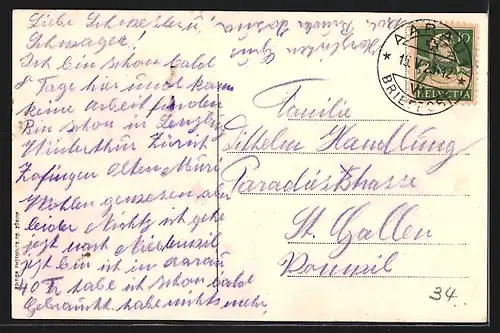 Liebe Schwester u.
Schwager!
Ich bin schon bald
8 Tage hier und kann
keine Arbeit finden
Bin schon in
Winterthur Zürich
Zofingen Olten Muri
Wohlen gewesen aber
leider Nichts ich gehe
jezt nach
jezt bin ich in Aarau
40 Fr habe ich schon bald
Gebraucht habe nichts mehr
Herzlichen Grus
Bruder
AARAU
BRIEF
10
HELVETIA
Familie
Wilhelm Handlung
Paradiesstrasse
St. Gallen
34